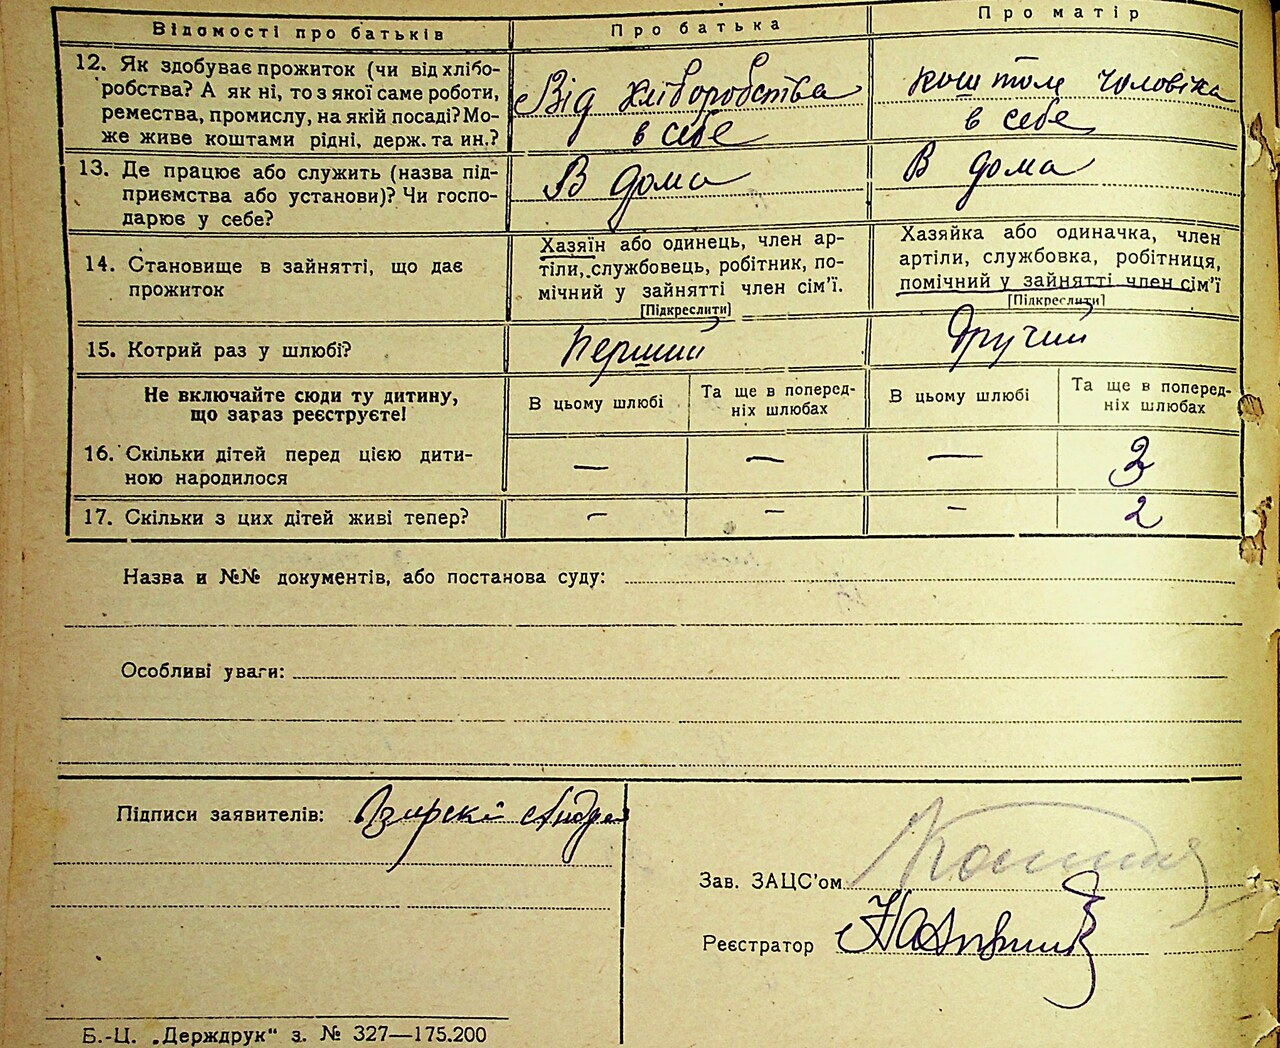 Відомості про батьків
Про батька
Про матір
12. Як здобуває прожиток (чи від хлібо-
робства? А як ні, то з якої саме роботи,
ремества, промислу, на якій посаді? Мо-
же живе коштами рідні, держ. та ин.?
Від хліборобства
в себе
коштом чоловіка
в себе
13. Де працює або служить (назва під-
приємства або установи)? Чи госпо-
дарює у себе?
В дома
В дома
14. Становище в зайнятті, що дає
прожиток
Хазяїн або одинець, член ар-
тіли, службовець, робітник, по-
мічний у зайнятті член сім’ї.
[Підкреслити]
Хазяйка або одиначка, член
артіли, службовка, робітниця,
помічний у зайнятті член сім’ї
[Підкреслити]
15. Котрий раз у шлюбі?
перший
другий
Не включайте сюди ту дитину,
що зараз реєструєте!
В цьому шлюбі
Та ще в поперед-
ніх шлюбах
В цьому шлюбі
Та ще в поперед-
ніх шлюбах
16. Скільки дітей перед цією дити-
ною народилося
— — —
17. Скільки з цих дітей живі тепер?
– – – 2
Назва и №№ документів, або постанова суду:
Особливі уваги:
Підписи заявителів:
Зав. ЗАЦС’ом
Реєстратор
Б.-Ц. „Держдрук“ з. № 327—175.200